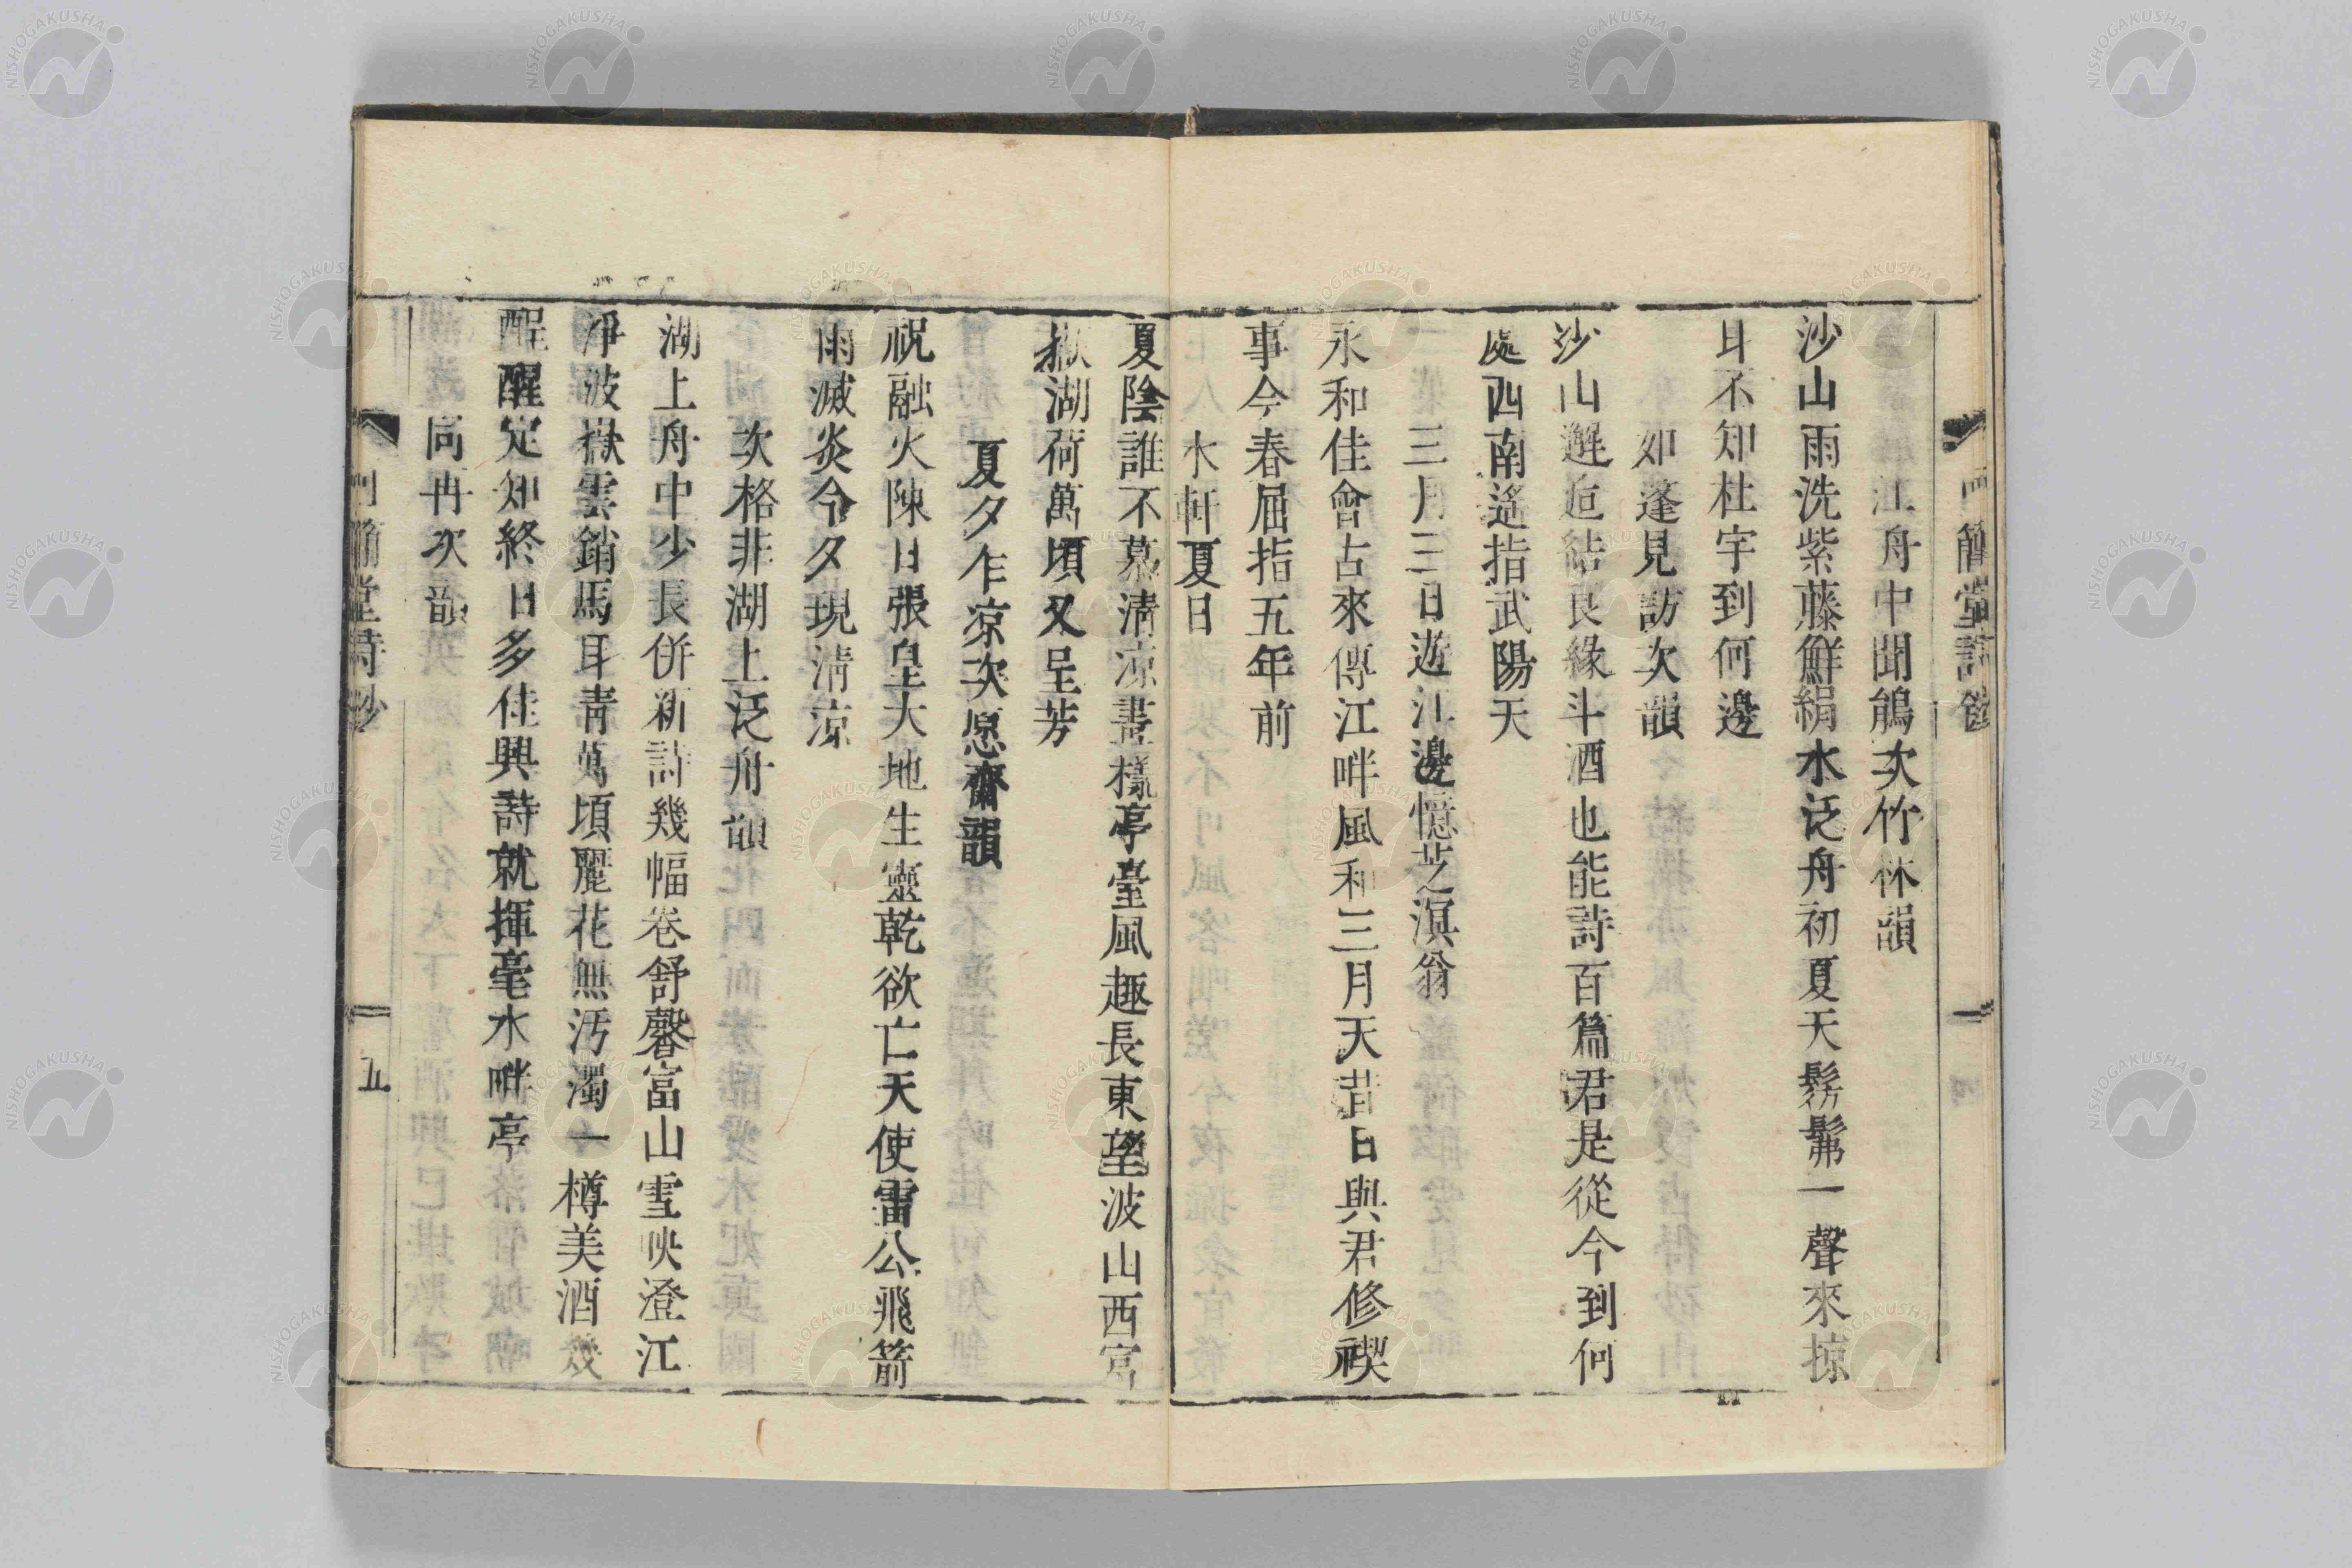 江舟中聞鵑次竹林韻
沙山雨洗紫藤鮮絹水泛舟初夏天髣髴一聲來掠
耳不知杜宇到何邊
如蓬見訪次韻
沙山邂逅結良緣斗酒也能詩百篇君是從今到何
處西南遙指武陽天
三月三日遊江邊憶芝濵翁
永和佳會古來傳江畔風和三月天昔日與君修禊
事今春屈指五年前
水軒夏日
夏陰誰不慕清凉畫樣亭臺風趣長東望波山西富
嶽湖荷萬頃又呈芳
夏夕乍凉次愿齋韻
祝融火陳日張皇大地生靈乾欲亡天使雷公飛箭
雨滅炎今夕現清凉
次格非湖上泛舟韻
湖上舟中少長併新詩幾幅卷舒馨富山雪映澄江
淨波嶽雲銷馬耳青萬頃麗花無汚濁一樽美酒幾
醒醒定知終日多佳興詩就揮毫水畔亭
同冉次韻
堂詩鈔
五
NISHOGAKUSHA